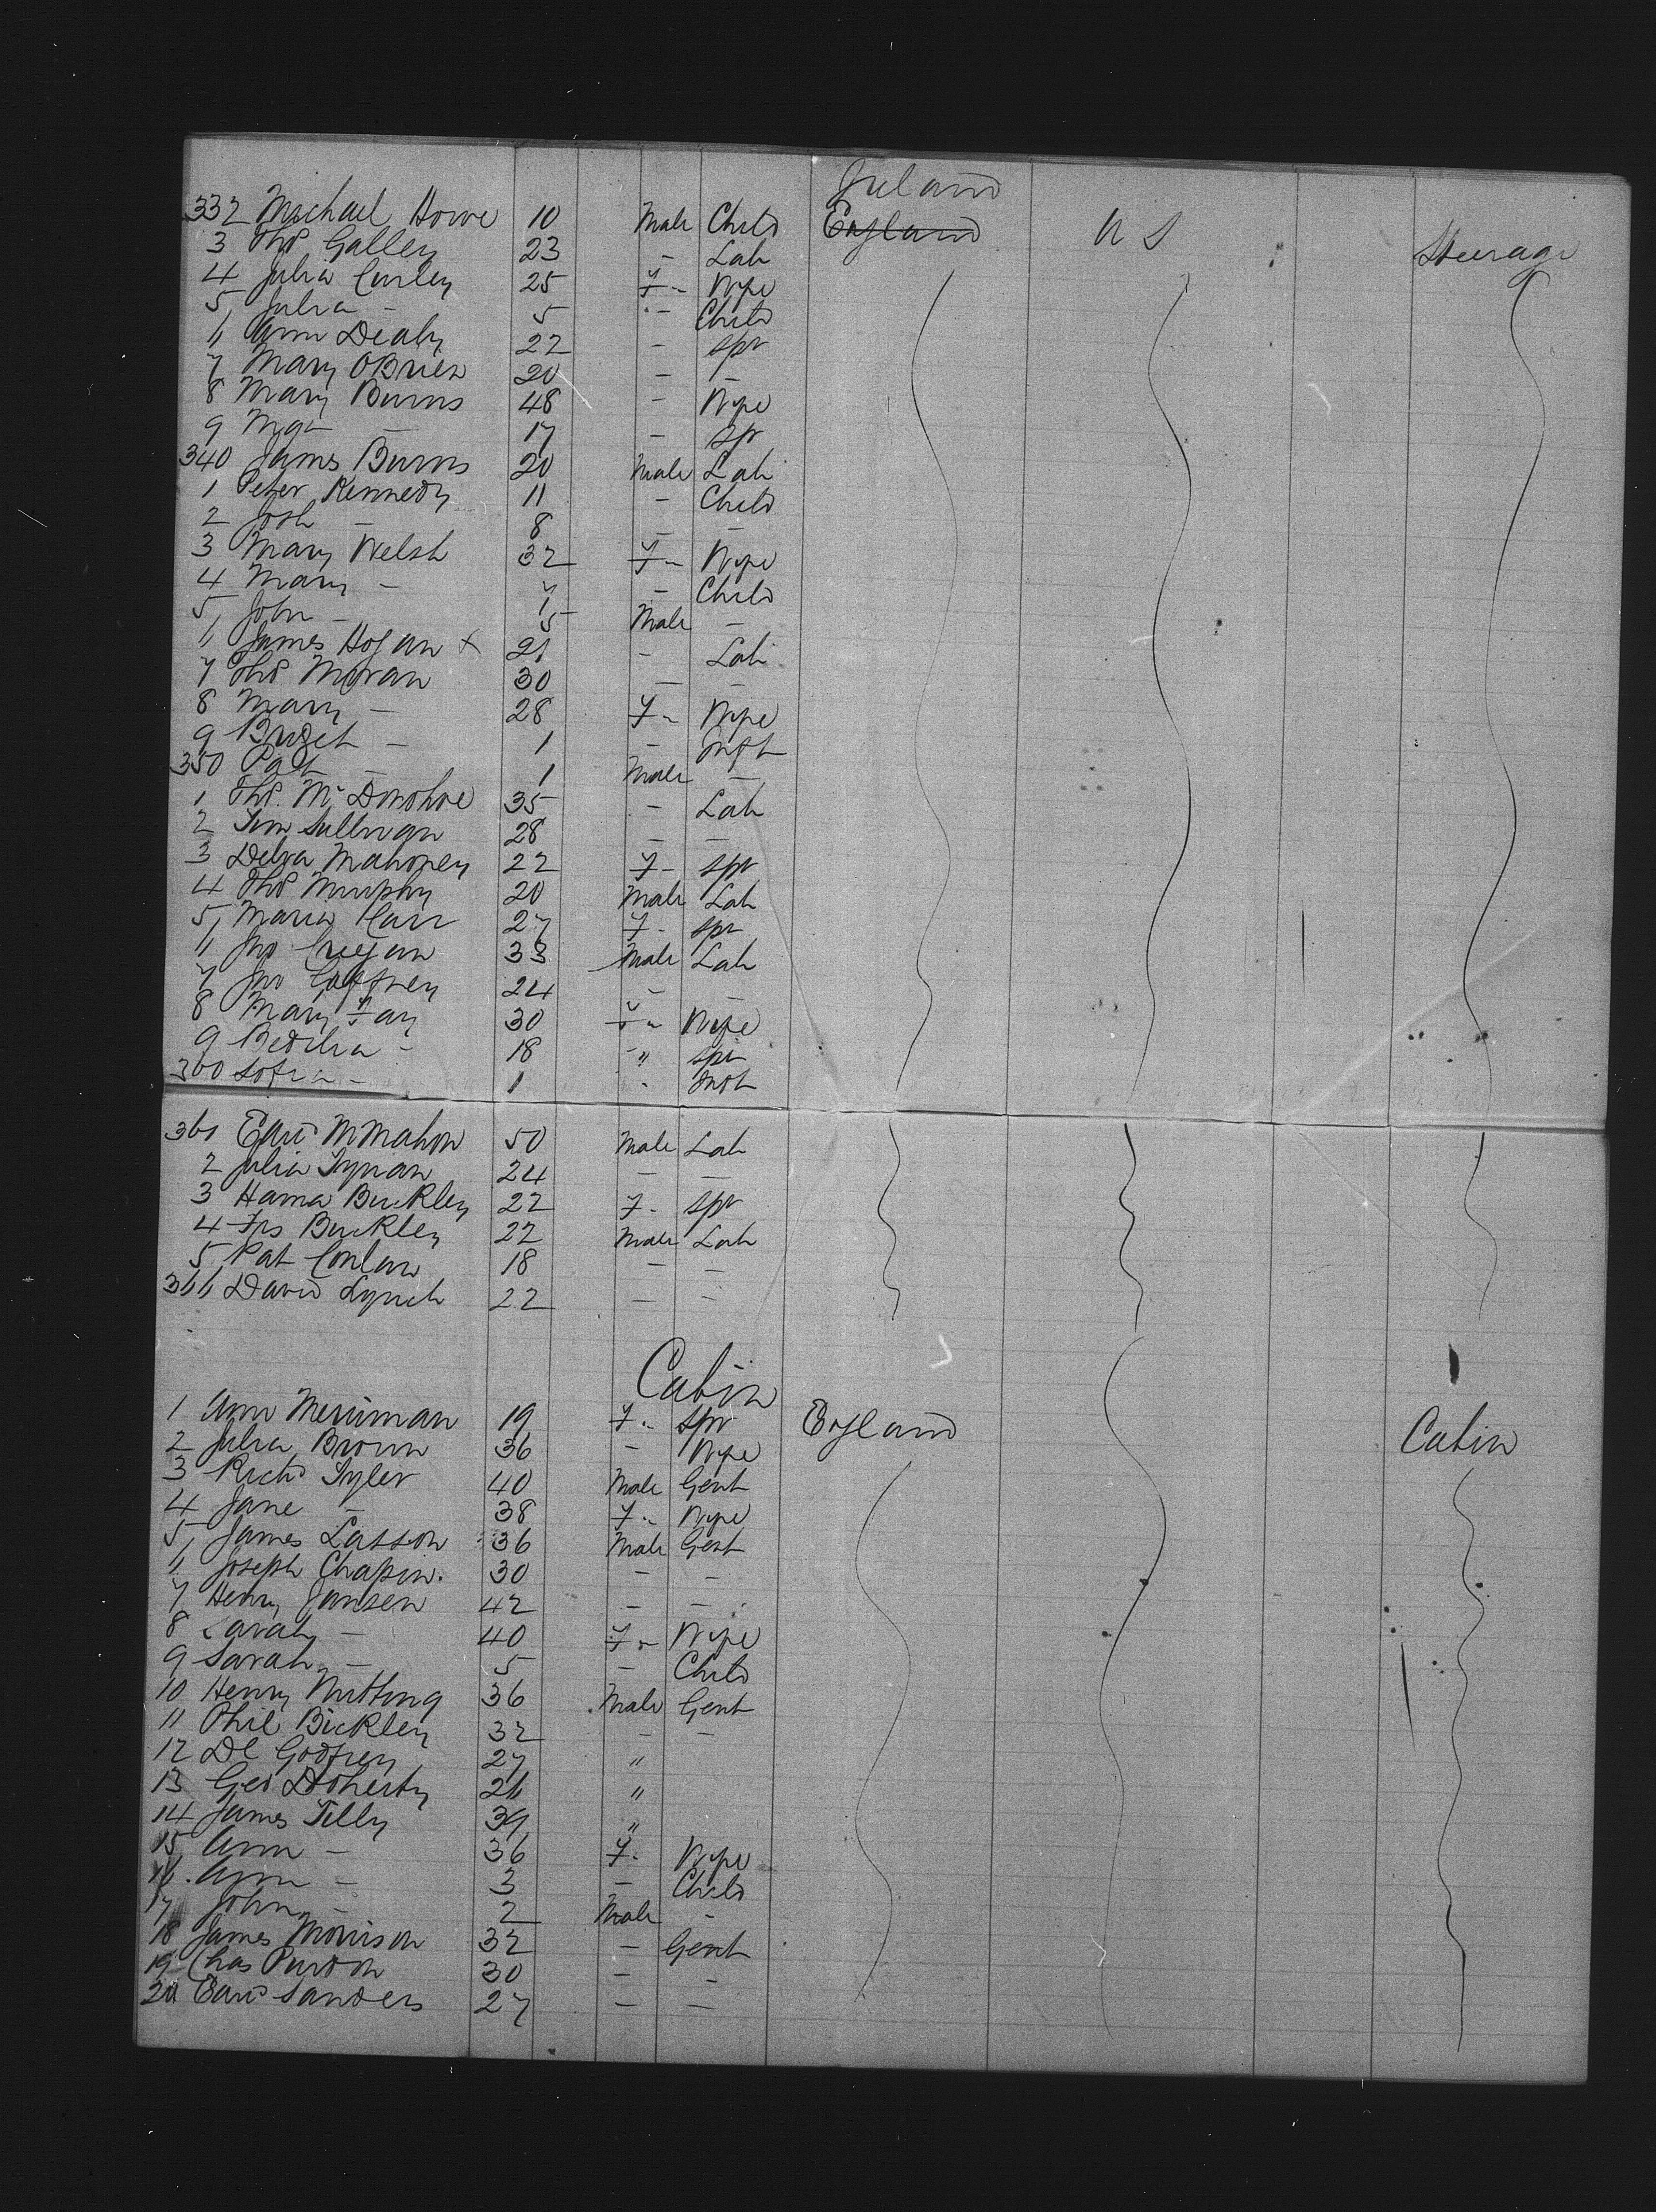 Ireland
332 Michael Howe 10 Male Child England U S Steerage
3 Thos Galley 23 - Lab
4 Julia Curley 25 F- Wife
5 Julia - 5 - Child
6 Ann Dealy 22 - Spr
7 Mary OBrien 20 - -
8 Mary Burns 48 - Wife
9 Mgt - 17 - Sp
340 James Burns 20 Male Lab
1 Peter Kennedy 11 - Child
2 Josh - 8 - -
3 Mary Welsh 32 F- Wife
4 Mary - 7 - Child
5 John - 5 Male -
6 James Hogan x 21 - Lab
7 Thos Moran 30 - -
8 Mary - 28 F- Wife
9 Bridget - 1 - Inft
350 Patk - 1 Male -
1 Thos. McDonohoe 35 - Lab
2 Tim Sullivan 28 - -
3 Delia Mahoney 22 F- Spr
4 Thos Murphy 20 Male Lab
5 Maria Carr 27 F- Spr
6 Jno Creegan 33 Male Lab
7 Jno Gaffney 24 - -
8 Mary Fay 30 F- Wife
9 Bedelia - 18 - " Spr
360 Sofia - 1 - Inft
361 Edwd McMahon 50 Male Lab
2 Julia Tynan 24 - -
3 Hanna Buckley 22 F- Spr
4 Frs Buckley 22 Male Lab
5 Pat Conlan 18 - -
366 David Lynch 22 - -
Cabin
1 Ann Merriman 19 F- Spr England Cabin
2 Julia Brown 36 - Wife
3 Richd Tyler 40 Male Gent
4 Jane - 38 F- Wife
5 James Lasson 36 Male Gent
6 Joseph Chapin. 30 - -
7 Henry Jansen 42 - -
8 Sarah - 40 F- Wife
9 Sarah - 5 - Child
10 Henry Nutting 36 Male Gent
11 Phil Bickley 32 - -
12 Dl Godfrey 27 "
13 Geo Doherty 26 "
14 James Tilly 39 "
15 Ann - 36 F- Wife
16. Ann - 3 - Child
17 John - 2 Male -
18 James Morrison 32 - Gent
19 Chas Purdon 30 - -
20 Edwd Sanders 27 - -